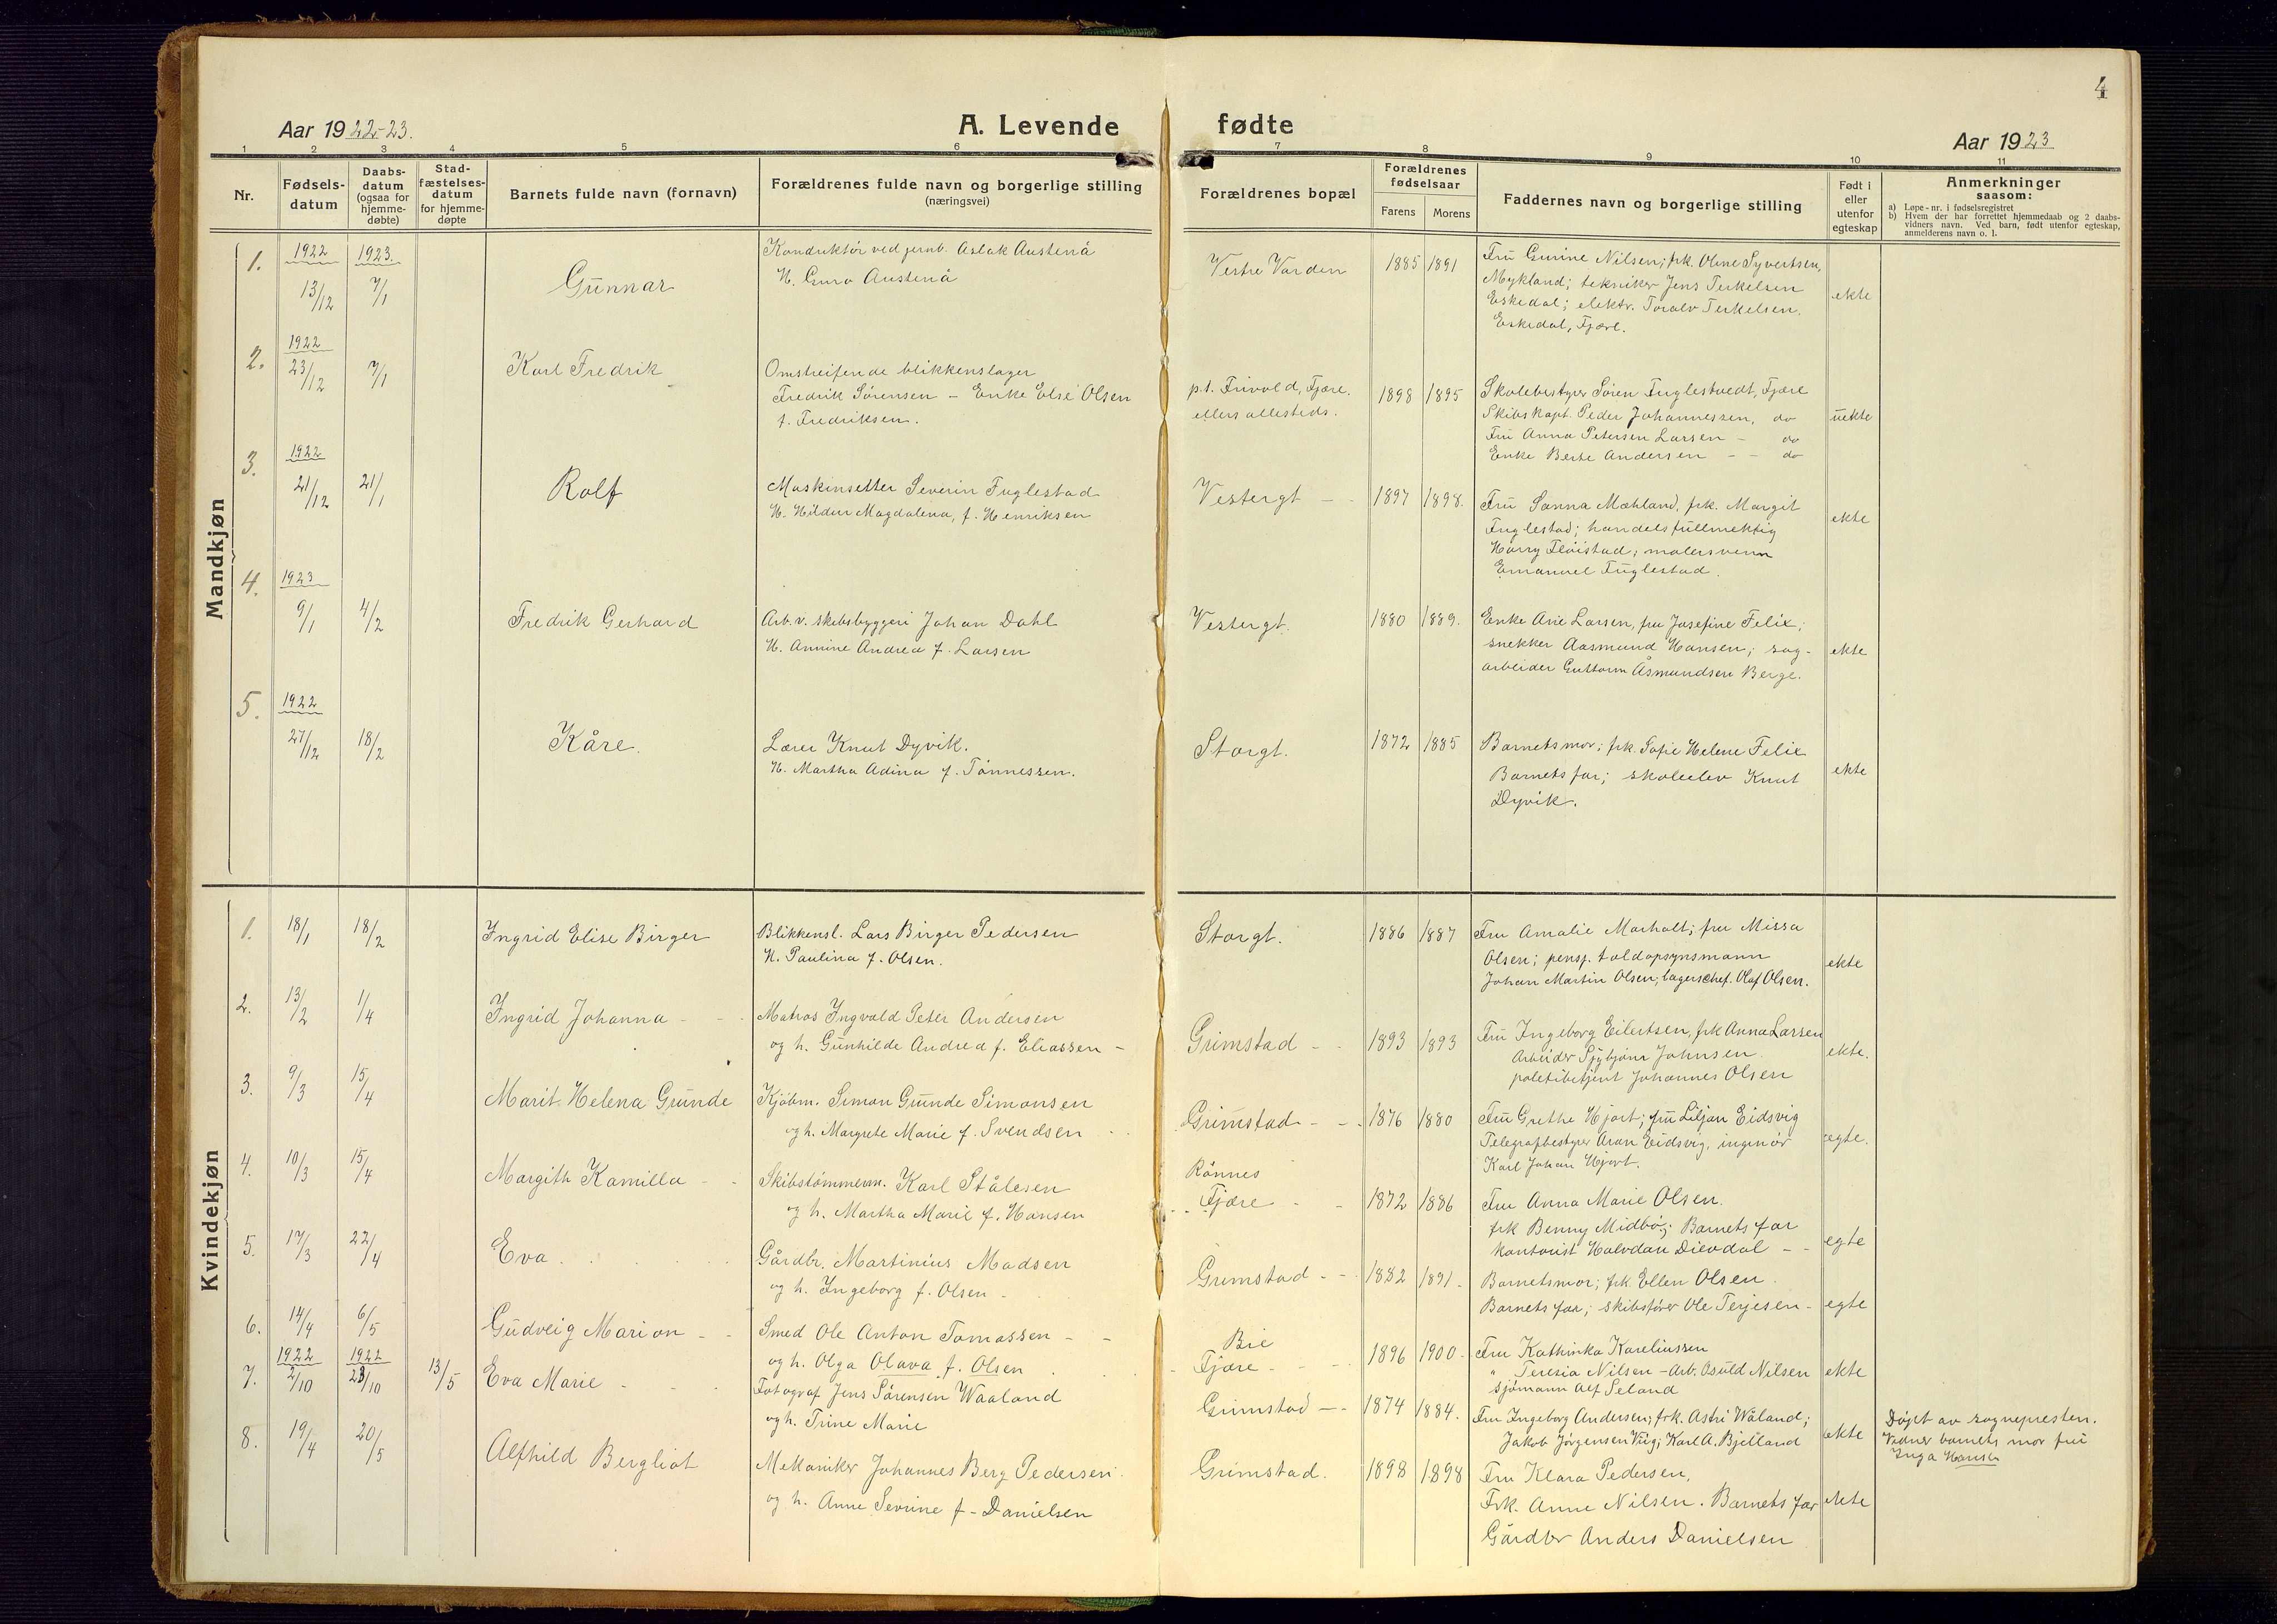 4
Aar 1922-23.
A. Levende fødte
Aar 1923
1 2 3 4 5 6 7 8 9 10 11
Nr.
Fødsels-
datum
Daabs-
datum
(ogsaa for
hjemme-
døbte)
Stad-
fæstelses-
datum
for hjemme-
døpte
Barnets fulde navn (fornavn)
Forældrenes fulde navn og borgerlige stilling
(næringsvei)
Forældrenes bopæl
Forældrenes
fødselsaar
Farens Morens
Faddernes navn og borgerlige stilling
Født i
eller
utenfor
egteskap
Anmerkninger
saasom:
a) Løpe-nr. i fødselsregistret
b) Hvem der har forrettet hjemmedaab og 2 daabs-
vidners navn. Ved barn, født utenfor egteskap,
anmelderens navn o. l.
Mandkjøn
1.
1922
13/12
1923.
7/1
Gunnar
Konduktør ved jernb. Aslak Austenå
H. Guro Austenå
Vestre Varden
1885 1891
Fru Gurine Nilsen; frk. Oline Syvertsen,
Mykland; tekniker Jens Terkelsen
Eskedal; elektr. Toralv Terkelsen.
Eskedal, Fjære.
ekte
2.
1922
23/12
7/1
Karl Fredrik
Omstreifende blikkenslager
Fredrik Sørensen – Enke Else Olsen
f. Fredriksen.
p.t. Frivold, Fjære.
ellers allesteds.
1898 1895
Skolebestyrer Søren Fuglestvedt, Fjære
Skibskapt. Peder Johannessen, do
Fru Anna Petersen Larsen – do
Enke Berte Andersen – – do
uekte
3.
1922
21/12
21/1
Rolf
Maskinsetter Severin Fuglestad
H. Hildur Magdalena, f. Henriksen
Vestergt – -
1897 1898.
Fru Sanna Mæhland, frk. Margit
Fuglestad; handelsfullmektig
Harry Fløistad; malersvenn
Emanuel Fuglestad.
ekte
4.
1923
9/1
4/2
Fredrik Gerhard
Arb. v. skibsbyggeri Johan Dahl
H. Annine Andrea f. Larsen
Vestergt.
1880 1889.
Enke Arie Larsen, fru Josefine Felix;
snekker Aasmund Hansen; sag-
arbeider Guttorm Åsmundsen Berge.
ekte
5.
1922
27/12
18/2
Kåre.
Lærer Knut Dyvik.
H. Martha Adina f. Tønnessen.
Storgt.
1872 1885
Barnets mor; frk. Sofie Helene Felix
Barnets far; skoleelev Knut
Dyvik.
ekte
Kvindekjøn
1.
18/1
18/2
Ingrid Elise Birger
Blikkensl. Lars Birger Pedersen
H. Paulina f. Olsen.
Storgt.
1886 1887
Fru Amalie Morholt; fru Missa
Olsen; pensj. toldopsynsmann
Johan Martin Olsen; lagerschef. Olaf Olsen.
ekte
2.
13/2
1/4
Ingrid Johanna – -
Matros Ingvald Peter Andersen
og h. Gunhilde Andrea f. Eliassen –
Grimstad – -
1893 1893
Fru Ingeborg Eilertsen, frk Anna Larsen
Arbeider Johnsen
politibetjent Johannes Olsen
ekte.
3.
9/3
15/4
Marit Helena Grunde
Kjøbm. Simon Grunde Simonsen
og h. Margrete Marie f. Svendsen
Grimstad – -
1876 1880
Fru Grethe Hjort; fru Liljan Eidsvig
Telegrafbestyrer Aran Eidsvig, ingeniør
Karl Johan Hjort.
egte.
4.
10/3
15/4
Margith Kamilla – -
Skibstømmerm. Karl Stålesen
og h. Martha Marie f. Hansen
Rønnes
Fjære
1872 1886
Fru Anna Marie Olsen.
frk Benny Midbø; Barnets far
kontorist Halvdan Diesdal – -
egte
5.
17/3
22/4
Eva
Gårdbr. Martinius Madsen
og h. Ingeborg f. Olsen –
Grimstad – -
1882 1891
Barnets mor; frk. Ellen Olsen.
Barnets far; skibsfører Ole Terjesen –
egte
6.
14/4
6/5
Gudveig Marion – -
Smed Ole Anton Tomassen – -
og h. Olga Olava f. Olsen
Bie
Fjære
1896 1900
Fru Kathinka Kareliussen
" Teresia Nilsen – Arb. Osuld Nilsen
sjømann Alf Seland
ekte
7.
1922
2/10
1922
23/10
13/5
Eva Marie
Fotograf Jens Sørensen Waaland
og h. Trine Marie
Grimstad – -
1874 1884.
Fru Ingeborg Andersen; frk. Astri Wåland;
Jakob Jørgensen Viig; Karl A. Bjelland
ekte
Døpt av sognepresten.
Vidner barnets mor frü
Inga Hansen
8.
19/4
20/5
Alfhild Bergliot
Mekaniker Johannes Berg Pedersen
og h. Anne Sevrine f – Danielsen
Grimstad.
1898 1898
Fru Klara Pedersen,
Frk. Anne Nilsen. Barnets far
Gårdbr Anders Danielsen
ekte